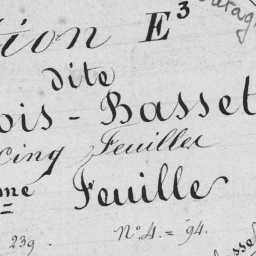 tion E³
dite
ois - Basset
Cinq Feuilles
me Feuille
239. N° 4. = 94.